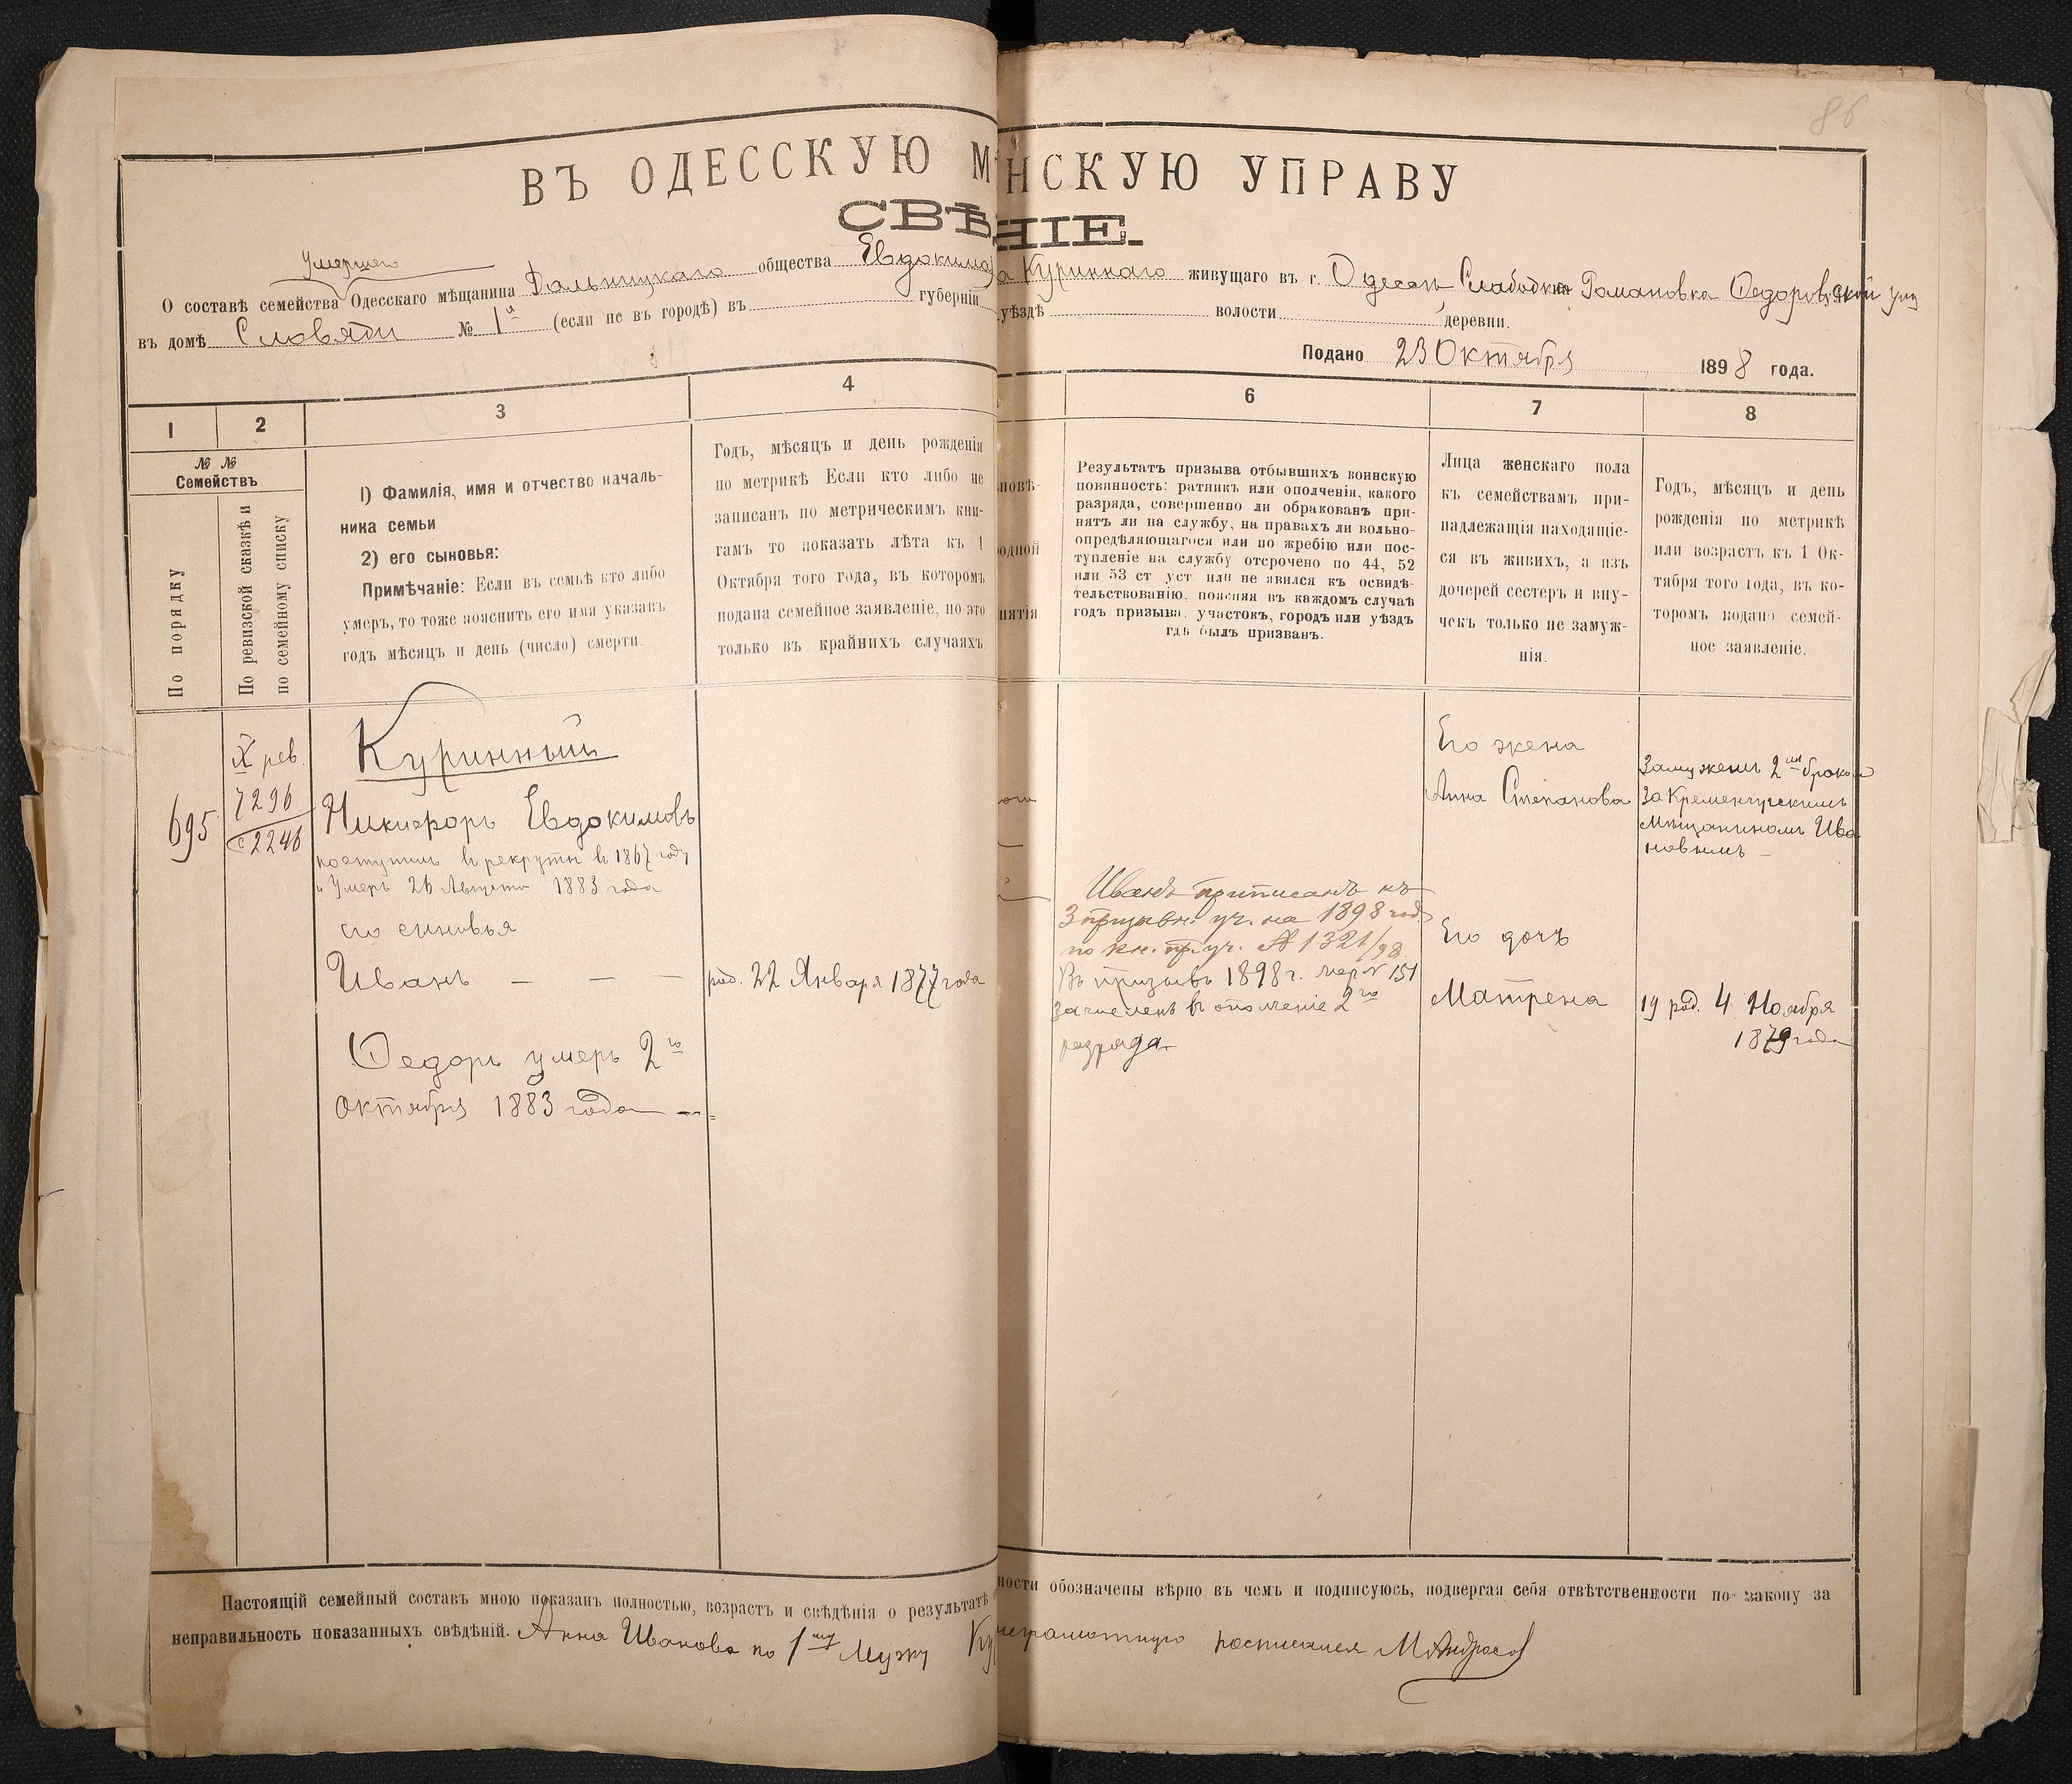 86
ВЪ ОДЕССКУЮ М НСКУЮ УПРАВУ
СВѢ НІЕ.
умершаго
О составѣ семейства Одесскаго мѣщанина Дальницкаго общества Евдокимова Куриннаго живущаго въ г. Одессѣ Слабодка Романовка Ѳедоровской улц
въ домѣ Словяди № 1й (если не въ городѣ) въ губерніи уѣздѣ волости деревни.
Подано 23 Октября 1898 года.
1 2 3 4 6 7 8
№ №
Семействъ
По порядку
По ревизской сказкѣ и
по семейному списку
1) Фамилія, имя и отчество началь-
ника семьи
2) его сыновья:
Примѣчаніе: Если въ семьѣ кто либо
умеръ, то тоже пояснить его имя указавъ
годъ мѣсяцъ и день (число) смерти.
Годъ, мѣсяцъ и день рожденія
по метрикѣ Если кто либо не
записанъ по метрическимъ кни-
гамъ то показать лѣта къ 1
Октября того года, въ которомъ
подана семейное заявленіе, но это
только въ крайнихъ случаяхъ
повѣ-
одной
нятія
Результатъ призыва отбывшихъ воинскую
повинность: ратникъ или ополченія, какого
разряда, совершенно ли обракованъ при-
нятъ ли на службу, на правахъ ли вольно-
опредѣляющагося или по жребію или пос-
тупленіе на службу отсрочено по 44, 52
или 53 ст уст или не явился къ освидѣ-
тельствованію, поясняя въ каждомъ случаѣ
годъ призыва, участокъ, городъ или уѣздъ
гдѣ былъ призванъ.
Лица женскаго пола
къ семействамъ при-
надлежащія находящіе-
ся въ живихъ, а изъ
дочерей сестеръ и вну-
чекъ только не замуж-
нія.
Годъ, мѣсяцъ и день
рожденія по метрикѣ
или возрастъ къ 1 Ок-
тября того года, въ ко-
торомъ подано семей-
ное заявленіе.
695
X рев.
7296
с 2246
Куринный
Никифоръ Евдокимовъ
поступилъ въ рекруты въ 1867 году
и умеръ 26 Августа 1883 года
его сыновья
Иванъ — — —
Ѳедоръ умеръ 2го
Октября 1883 года
род. 22 Января 1877 года
Иванъ приписанъ къ
3 призывн. уч. на 1898 год.
по кн. пр. уч. № 1321/98
Въ призывъ 1898 г. жер № 151
зачисленъ въ ополченіе 2го
разряда
Его жена
Анна Степанова
Его дочъ
Матрена
Замужемъ 2мъ бракомъ
за Кременчугскимъ
мѣщаниномъ Ива
новымъ —
19 род. 4 Ноября
1879 года
Настоящій семейный составъ мною показанъ полностью, возрастъ и свѣдѣнія о результатѣ ности обозначены вѣрно въ чемъ и подписуюсь, подвергая себя отвѣтственности по закону за
неправильность показанныхъ свѣдѣній. Анна Иванова по 1му Мужу Ку неграмотную росписался М Андрасов